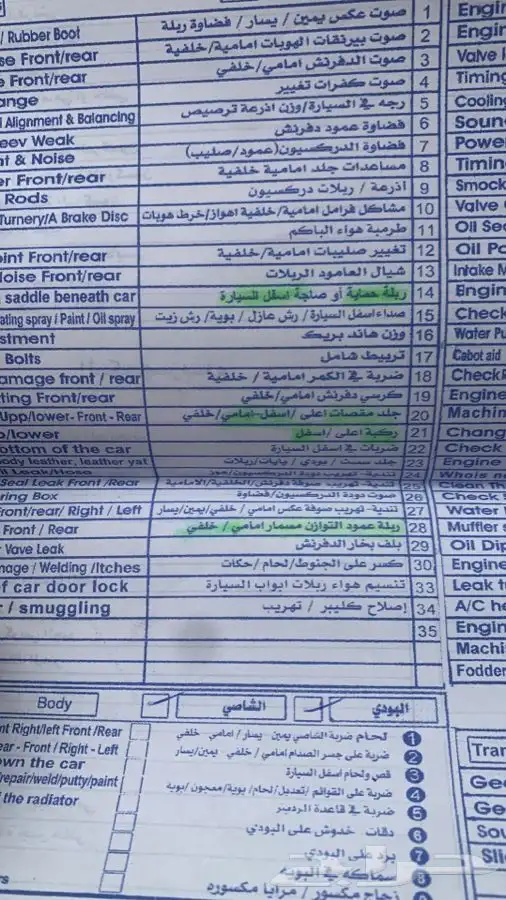 صوت عكس يمين / يسار / فضاوة ربلة 1 Engin
/ Rubber Boot صوت بيرنقات الهوبات امامية/خلفية 2 Engin
se Front/rear صوت الدفرنش امامي/خلفي 3 Valve
e Front/rear صوت كفرات تغيير 4 Timing
ange رجه في السيارة/وزن اذرعة ترصيص 5 Cooling
l Alignment & Balancing فضاوة عمود دفرنش 6 Soun
eev Weak فضاوة الدركسيون(عمود/صليب) 7 Powe
nt & Noise مساعدات جلد امامية خلفية 8 Timin
er Front/rear اذرعة / ربلات دركسيون 9 Smock
Rods مشاكل فرامل امامية/خلفية اهواز/خرط هوبات 10 Valve
Turnery/A Brake Disc طرمبة هواء الباكم 11 Oil Sea
oint Front/rear تغيير صليبات امامية/خلفية 12 Oil Po
Noise Front/rear شيال العامود الربلات 13 Intake M
saddle beneath car ربلة حماية أو صاجة اسفل السيارة 14 Engin
ating spray / Paint / Oil spray صداء اسفل السيارة / رش عازل / بوية/ رش زيت 15 Check
stment وزن هاند بريك 16 Water Pu
Bolts تربيط شامل 17 Cabot aid
amage front / rear ضربة في الكمر امامية / خلفية 18 Check
ting Front/rear كرسي دفرنش امامي/خلفي 19 Engine
Upp/lower- Front - Rear جلد مقصات اعلى /اسفل-امامي/خلفي 20 Machin
p/lower ركبة اعلى / اسفل 21 Chang
ottom of the car ضربات في اسفل السيارة 22 Check
body leather, leather yat جلد ست / بودي / يايات/ربلات 23 Engine
Seal Leak Front /Rear 25 Clean
ring Box صوت دودة الدركسيون/فضاوة 26 Check
ront/rear/ Right / Left تندية-تهريب صوفة عكس امامي/خلفي/يمين/يسار 27 Water
Front / Rear ربلة عمود التوازن مسمار امامي / خلفي 28 Muffler
Vave Leak بلف بخار الدفرنش 29 Oil Dip
mage / Welding /Itches كسر على الجنوط/لحام /حكات 30 Engine
f car door lock تنسيم هواء ربلات ابواب السيارة 33 Leak
/ smuggling إصلاح كليبر / تهريب 34 A/C he
35 Engin
Machi
Fodder
Body الشاصي البودي
nt Right/left Front /Rear لحام ضربة الشاصي يمين - يسار / امامي خلفي 1
ear - Front / Right - Left ضربة على جسر الصدام امامي / خلفي يمين/يسار 2 Tran
own the car قص ولحام اسفل السيارة 3
/repair/weld/putty/paint ضربة على القوائم /تعديل/لحام/ بوية/معجون/بوية 4 Gea
the radiator ضربة في قاعدة الرديتر 5 Ge
دقات خدوش على البودي 6 Sou
برد على البودي 7 Sli
سماكه في البويه 8
rs زجاج مكسور / مرايا مكسوره
حراج